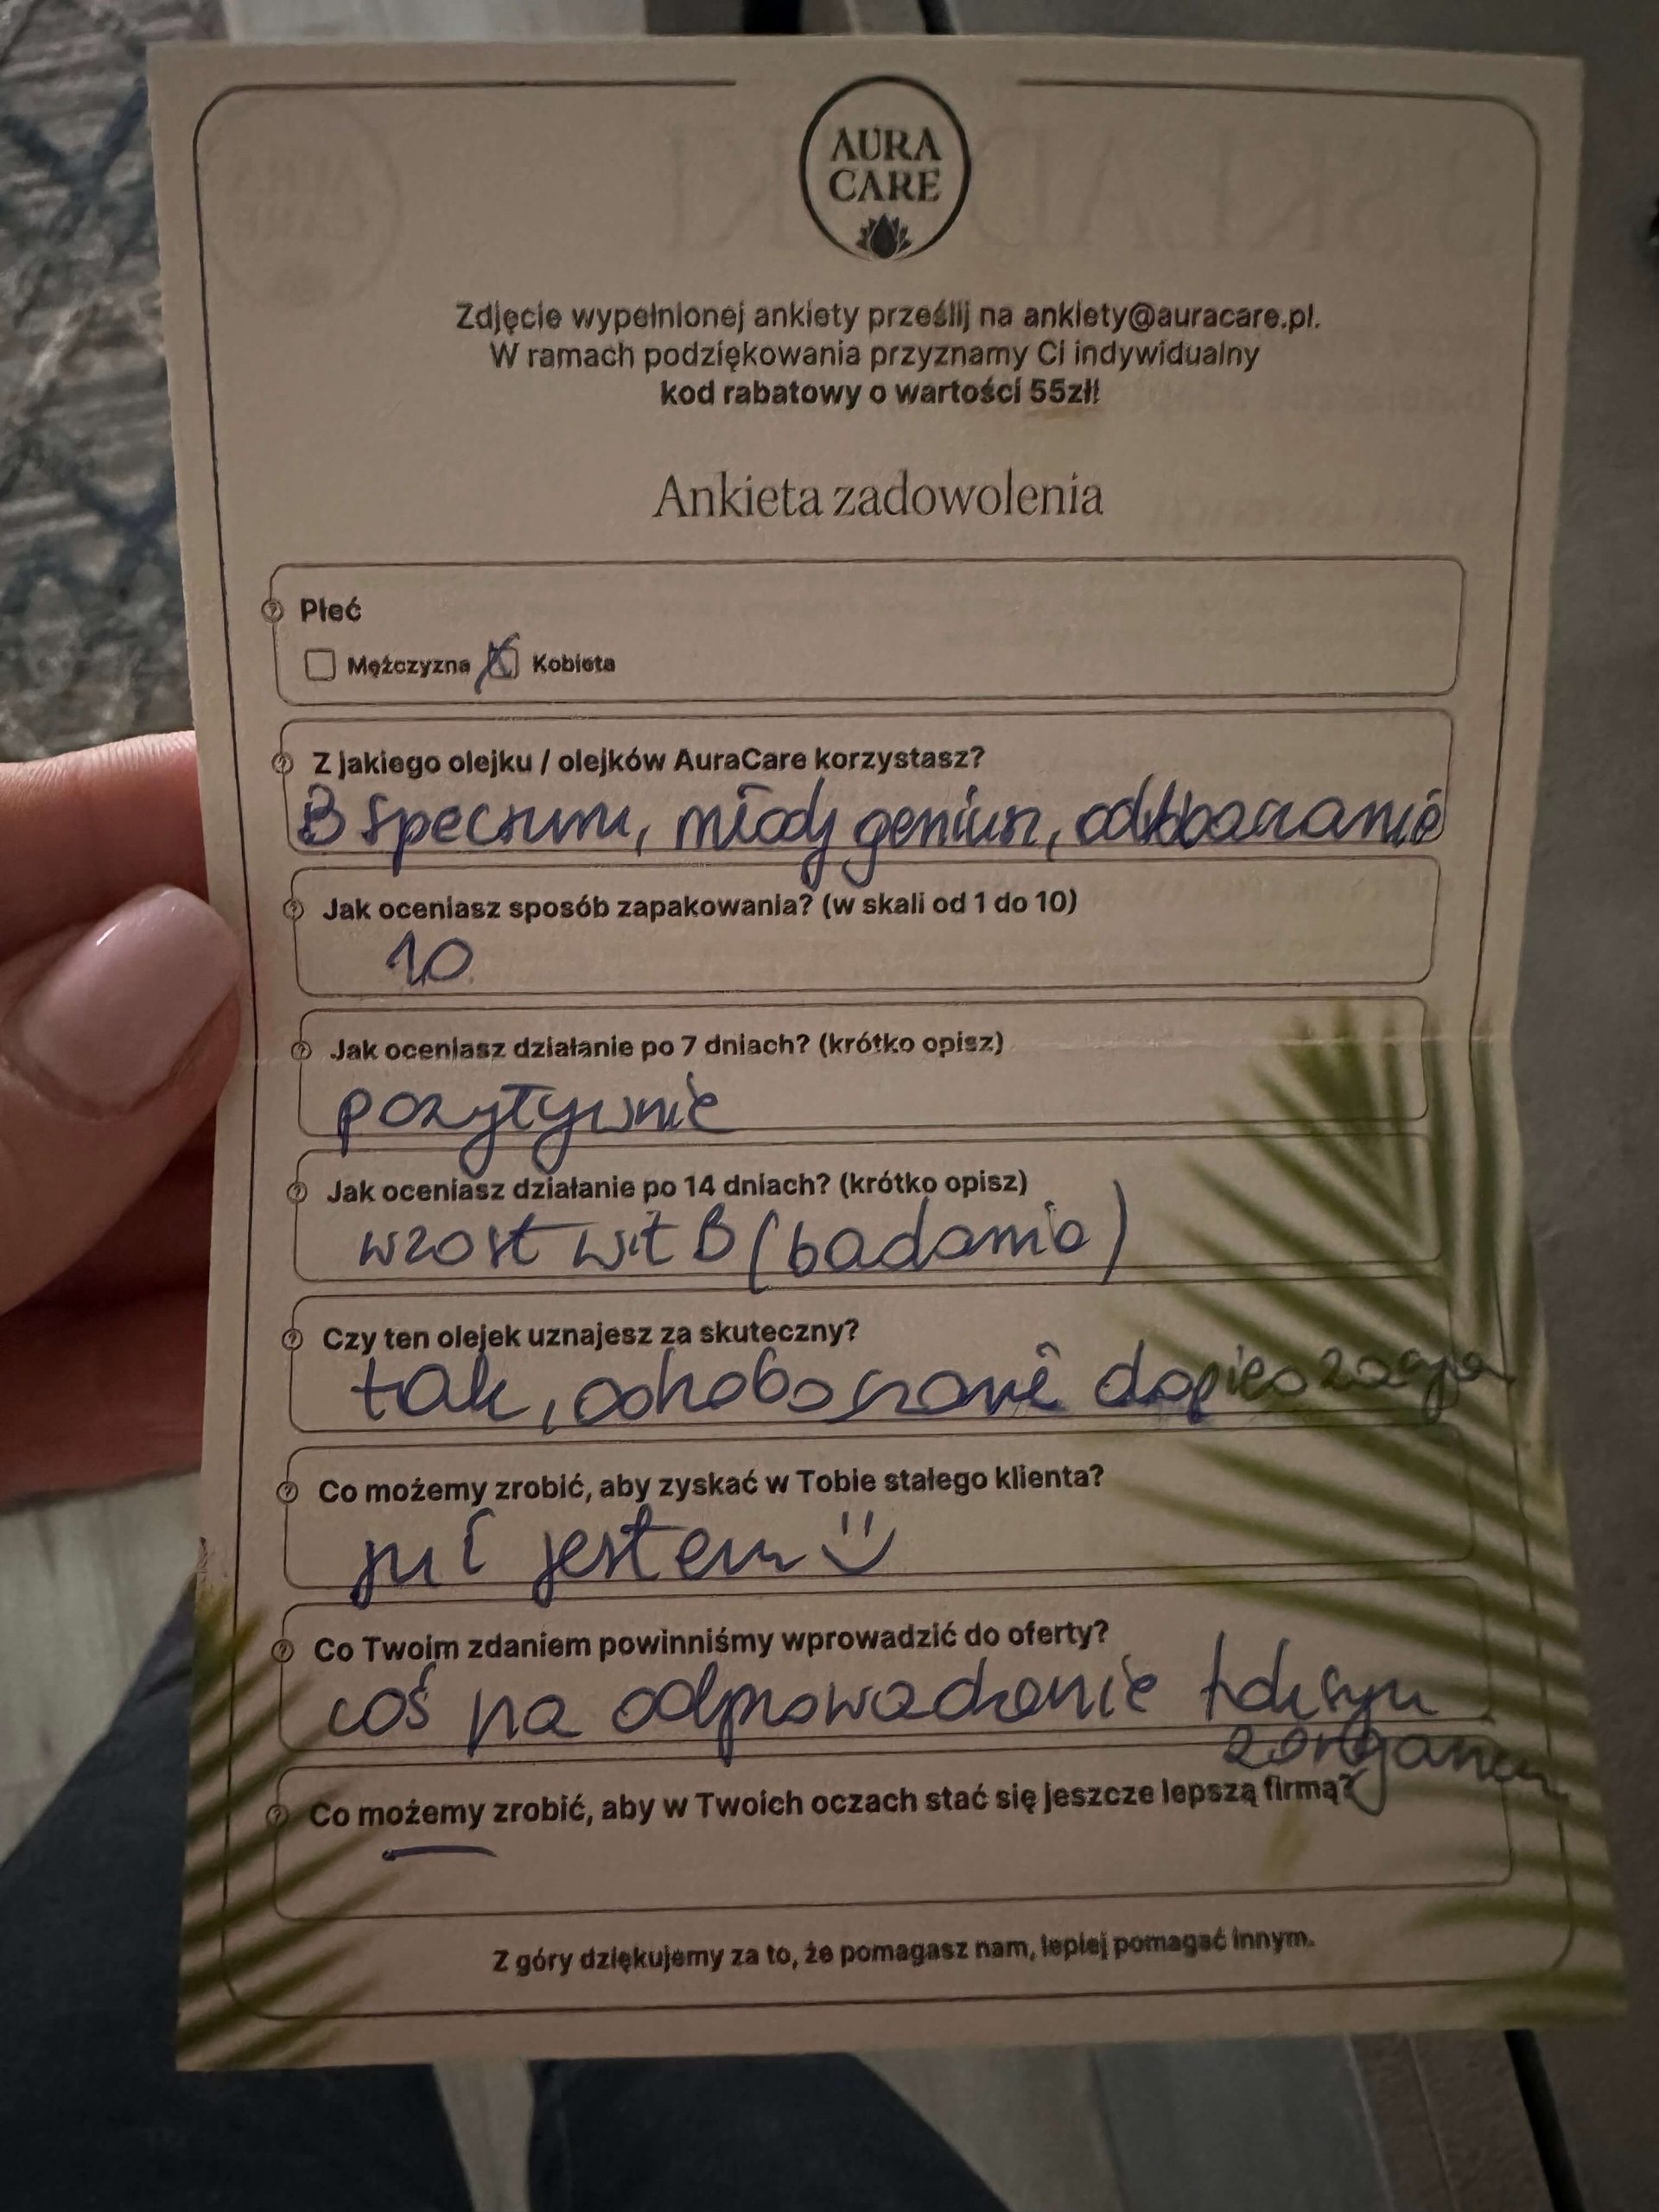 AURA
CARE
Zdjęcie wypełnionej ankiety prześlij na ankiety@auracare.pl.
W ramach podziękowania przyznamy Ci indywidualny
kod rabatowy o wartości 55zł!
Ankieta zadowolenia
Płeć
Mężczyzna Kobieta
Z jakiego olejku / olejków AuraCare korzystasz?
B specrum, młody geniusz,
Jak oceniasz sposób zapakowania? (w skali od 1 do 10)
10
Jak oceniasz działanie po 7 dniach? (krótko opisz)
pozytywnie
Jak oceniasz działanie po 14 dniach? (krótko opisz)
wzost wit B (badania)
Czy ten olejek uznajesz za skuteczny?
tak,
Co możemy zrobić, aby zyskać w Tobie stałego klienta?
już jestem
Co Twoim zdaniem powinniśmy wprowadzić do oferty?
coś na odprowadzenie toksyn
z organizm
Co możemy zrobić, aby w Twoich oczach stać się jeszcze lepszą firmą?
—
Z góry dziękujemy za to, że pomagasz nam, lepiej pomagać innym.